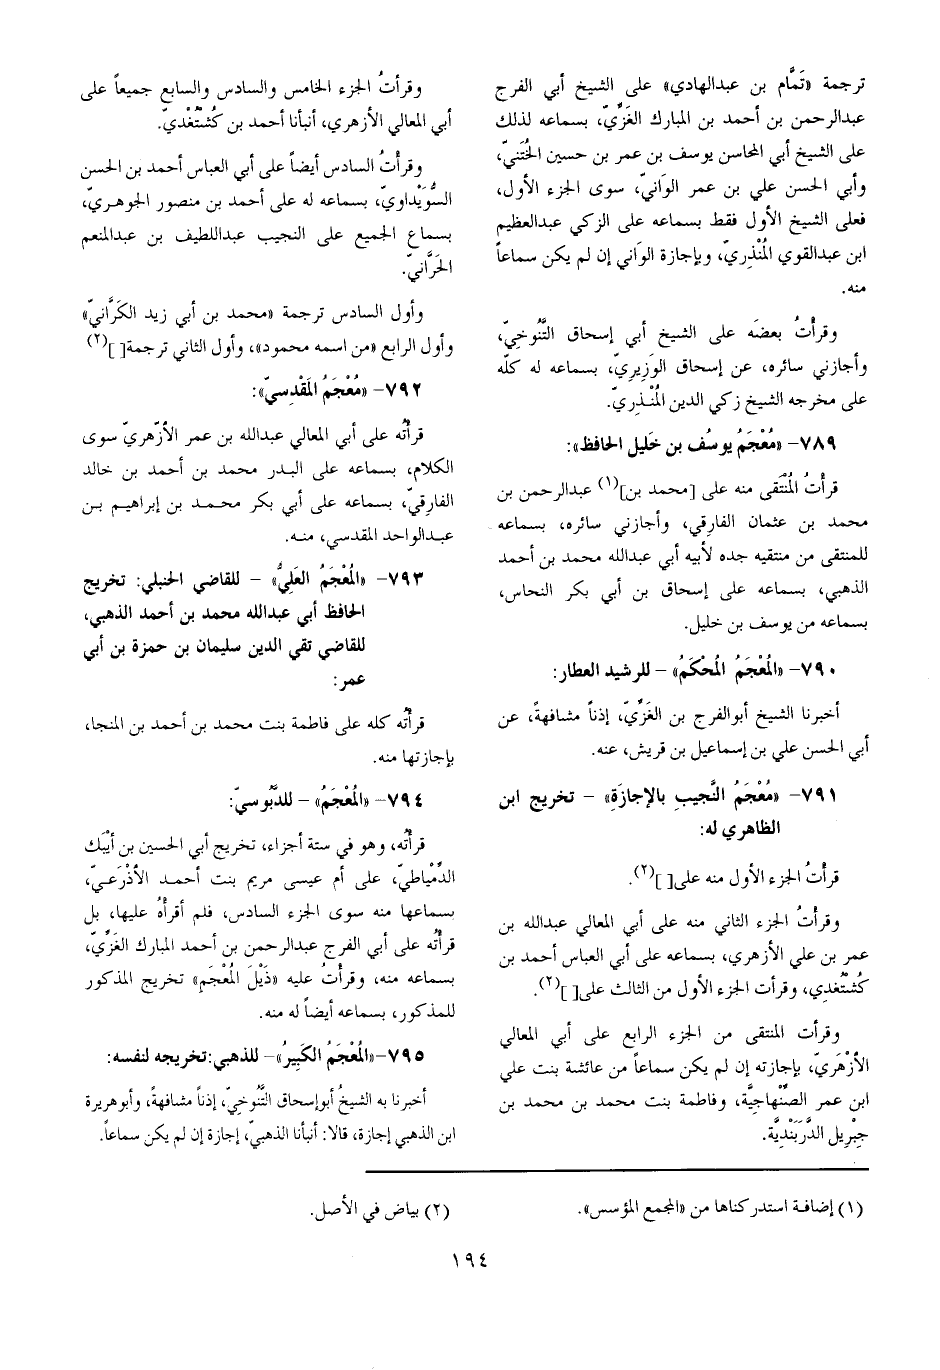 ترجمة «تَمَّام بن عبدالهادي» على الشيخ أبي الفرج
عبدالرحمن بن أحمد بن المبارك الغَزِّيّ، بسماعه لذلك
على الشيخ أبي المحاسن يوسف بن عمر بن حسين الخُتَنيّ،
وأبي الحسن علي بن عمر الوَانيّ، سوى الجزء الأول،
فعلى الشيخ الأول فقط بسماعه على الزكي عبدالعظيم
ابن عبدالقوي المُنْذِريّ، وبإجازة الوَاني إن لم يكن سماعاً
منه.
وقرأتُ بعضَه على الشيخ أبي إسحاق التَّنُوخيّ،
وأجازني سائره، عن إسحاق الوَزِيريّ، بسماعه له كلّه
على مخرجه الشيخ زكي الدين المُنْذِريّ.
٧٨٩- «مُعْجَمُ يوسُف بن خَليل الحافظ»:
قرأتُ المُنْتَقى منه على [محمد بن](١) عبدالرحمن بن
محمد بن عثمان الفارقي، وأجازني سائره، بسماعه
للمنتقى من منتقيه جده لأبيه أبي عبدالله محمد بن أحمد
الذهبي، بسماعه على إسحاق بن أبي بكر النحاس،
بسماعه من يوسف بن خليل.
٧٩٠- «المُعْجَمُ المُحْكَمُ» - للرشيد العطار:
أخبرنا الشيخ أبوالفرج بن الغَزِّيّ، إذناً مشافهةً، عن
أبي الحسن علي بن إسماعيل بن قريش، عنه.
٧٩١- «مُعْجَمُ النَّجيب بالإجازَةِ» - تخريج ابن
الظاهري له:
قرأتُ الجزء الأول منه على[ ](٢).
وقرأتُ الجزء الثاني منه على أبي المعالي عبدالله بن
عمر بن علي الأزهري، بسماعه على أبي العباس أحمد بن
كُشْتُغدي، وقرأت الجزء الأول من الثالث على[ ](٢).
وقرأت المنتقى من الجزء الرابع على أبي المعالي
الأزْهَريّ، بإجازته إن لم يكن سماعاً من عائشة بنت علي
ابن عمر الصِّنْهاجيَّة، وفاطمة بنت محمد بن محمد بن
جِبْريل الدَّرَبَنْديَّة.
وقرأتُ الجزء الخامس والسادس والسابع جميعاً على
أبي المعالي الأزهري، أنبأنا أحمد بن كُشْتُغْديّ.
وقرأتُ السادس أيضاً على أبي العباس أحمد بن الحسن
السُّوَيْداويّ، بسماعه له على أحمد بن منصور الجوهريّ،
بسماع الجميع على النجيب عبداللطيف بن عبدالمنعم
الحَرَّانيّ.
وأول السادس ترجمة «محمد بن أبي زيد الكَرَّانيّ»
وأول الرابع «من اسمه محمود»، وأول الثاني ترجمة[ ](٢)
٧٩٢- «مُعْجَمُ المَقْدِسيّ»:
قرأتُه على أبي المعالي عبدالله بن عمر الأزْهريّ سوى
الكلام، بسماعه على البدر محمد بن أحمد بن خالد
الفارقيّ، بسماعه على أبي بكر محمد بن إبراهيم بن
عبدالواحد المقدسي، منه.
٧٩٣- «المُعْجَمُ العَلِيُّ» - للقاضي الحنبلي: تخريج
الحافظ أبي عبدالله محمد بن أحمد الذهبي،
للقاضي تقي الدين سليمان بن حمزة بن أبي
عمر:
قرأتُه كله على فاطمة بنت محمد بن أحمد بن المنجا،
بإجازتها منه.
٧٩٤- «المُعْجَمُ» - للدَّبُوسيّ:
قرأتُه، وهو في ستة أجزاء، تخريج أبي الحسين بن أَيْبَك
الدِّمْياطيّ، على أم عيسى مريم بنت أحمد الأذْرَعيّ،
بسماعها منه سوى الجزء السادس، فلم أقرأهُ عليها، بل
قرأتُه على أبي الفرج عبدالرحمن بن أحمد المبارك الغَزِّيّ،
بسماعه منه، وقرأتُ عليه «ذَيْلَ المُعْجَم» تخريج المذكور
للمذكور، بسماعه أيضاً له منه.
٧٩٥-«المُعْجَمُ الكَبيرُ»- للذهبي:تخريجه لنفسه:
أخبرنا به الشيخُ أبوإسحاق التَّنُوخيّ، إذناً مشافهةً، وأبوهريرة
ابن الذهبي إجازة، قالا: أنبأنا الذهبيّ، إجازة إن لم يكن سماعاً.
(١) إضافة استدركناها من «المجمع المؤسس».
(٢) بياض في الأصل.
١٩٤